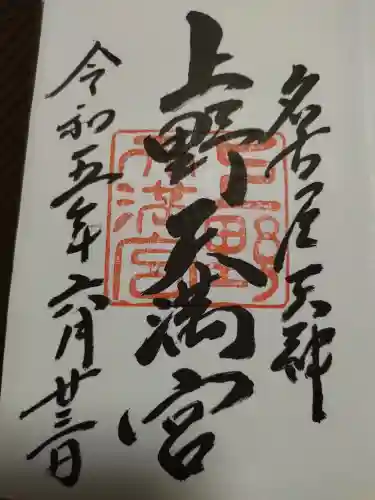 名古屋天神
上野天満宮
上野天満宮
令和五年六月廿三日